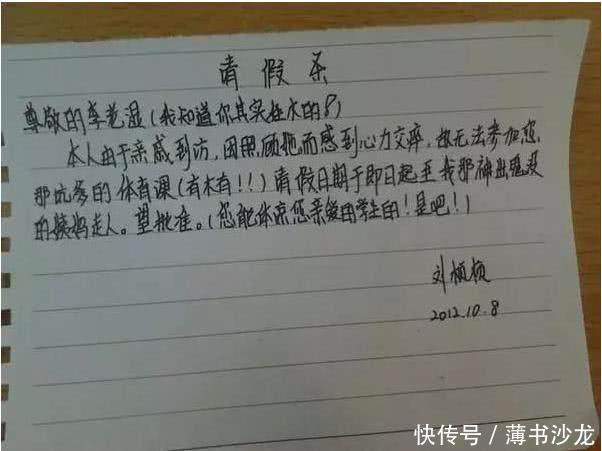 请假条
尊敬的李老湿(我知道你其实挺水的?)
本人由于亲戚到访,因照顾她而感到心力交瘁,故无法参加您
那坑爹的体育课(有木有!!)请假日期于即日起至我那神出鬼没
的姨妈走人。望批准。(您能体谅您亲爱的学生的!是吧!)
刘
2012.10.8
快传号/薄书沙龙